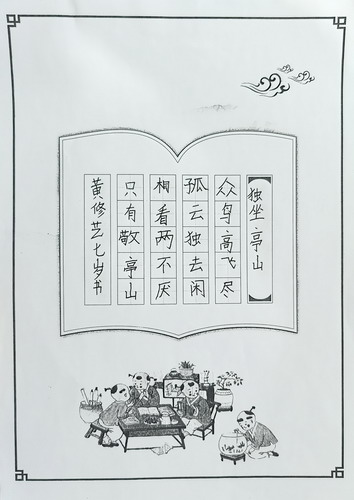 独坐亭山
众鸟高飞尽
孤云独去闲
相看两不厌
只有敬亭山
黄修艺七岁书